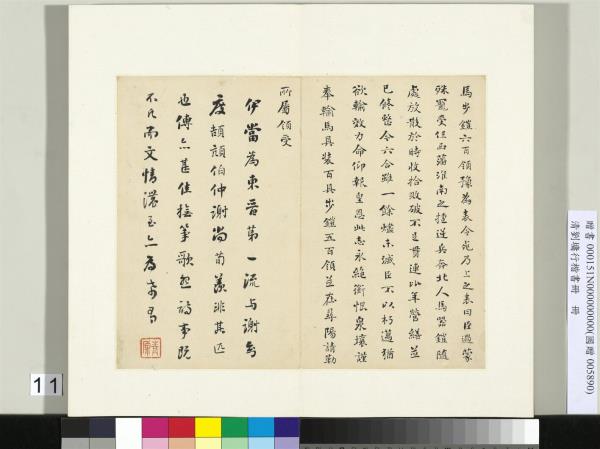 馬步鎧六百領豫爲表令死乃上之表曰臣過蒙
殊寵受任西藩淮南之捷逆兵奔北人馬器鎧隨
處放散於時收拾敗破不足貫連比年營繕並
已修整今六合雖一餘燼未滅臣不以朽邁猶
欲輸效力命仰報皇恩此志永絶銜恨泉壤謹
奉輸馬具裝百具步鎧五百領並在尋陽請勒
所屬領受
伊當爲東晉第一流與謝安
度頡頏伯仲謝尚荀羨非其匹
也傳亦甚佳撫箏歌怨詩事既
不凡而文情濃至亦爲希有
11
贈書 000151N000000000(國贈 005890)
清劉墉行楷書冊 冊